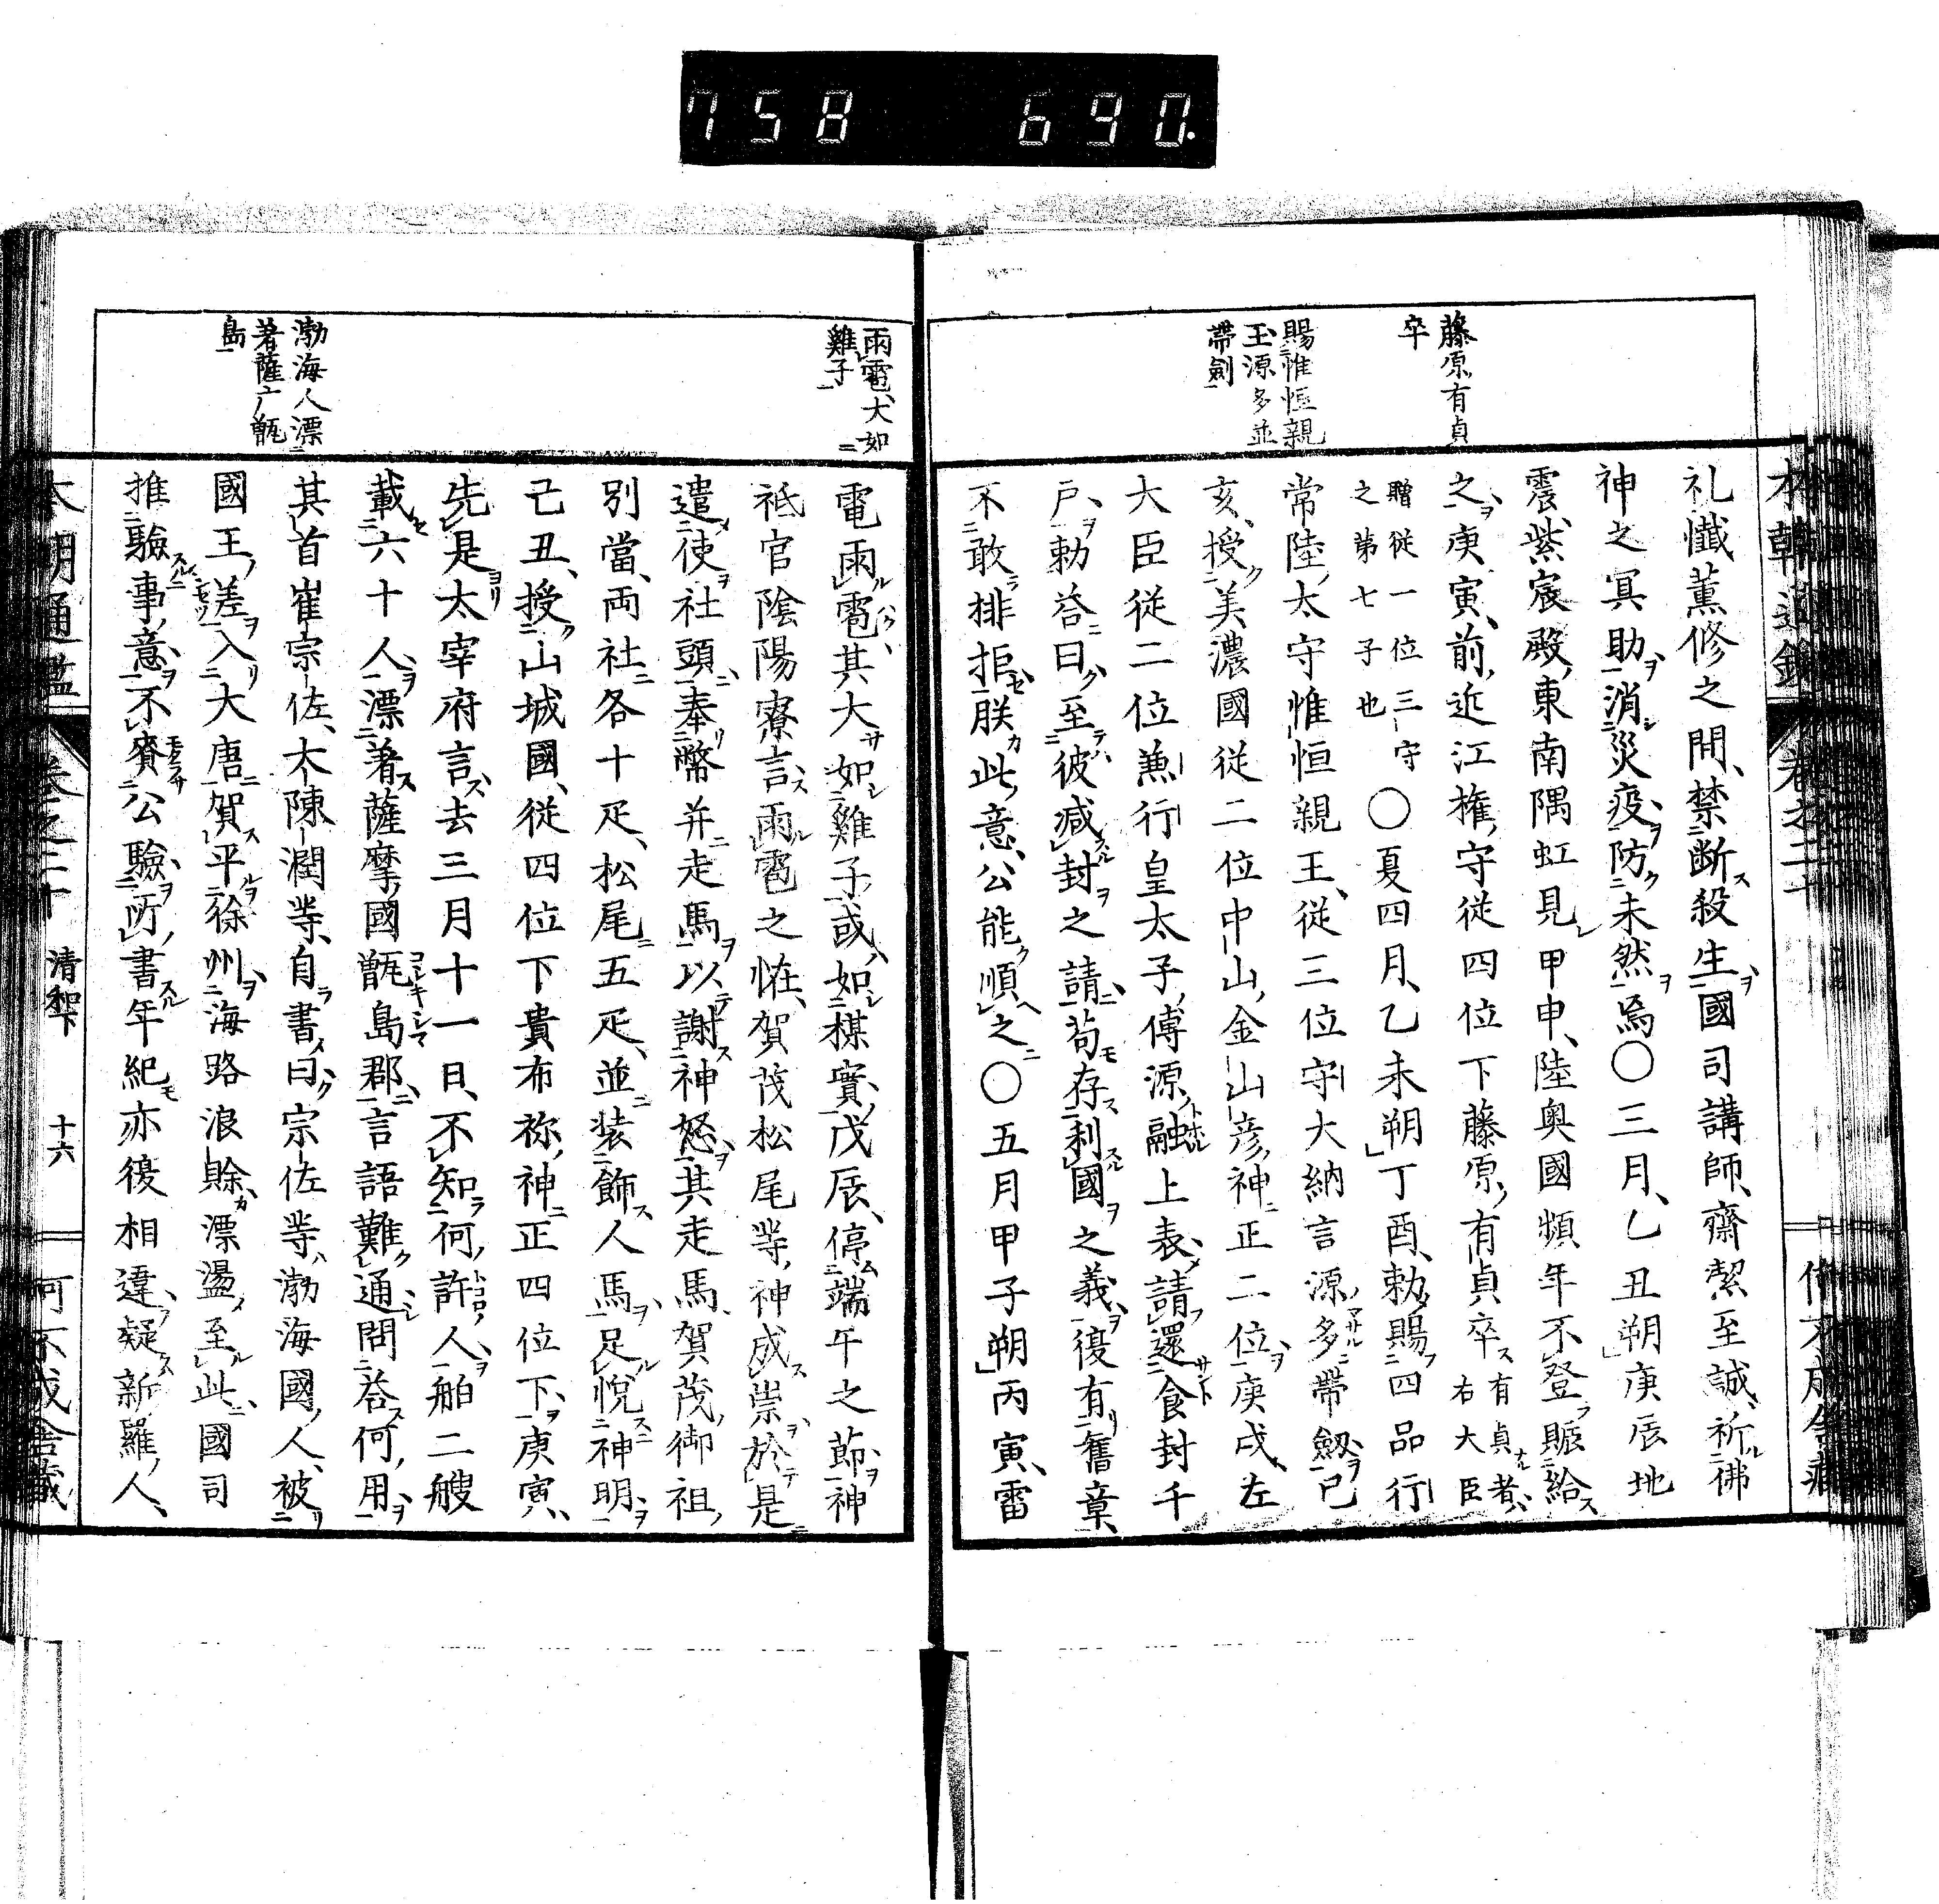 758 690.
藤原有貞
卒
賜惟恒親
王源多並
帶劍
礼懺薫修之間、禁断殺生、國司講師、齋潔至誠、祈佛
神之冥助、消災疫、防未然焉〇三月、乙丑朔庚辰地
震、紫宸殿東南隅虹見甲申、陸奥國頻年不登賑給
之、庚寅、前近江権守従四位下藤原有貞卒有貞者、右大臣
贈従一位三守之第七子也〇夏四月、乙未朔丁酉、勅賜四品行
常陸太守惟恒親王、従三位守大納言源多帶劔己
亥、授美濃國従二位中山金山彦神正二位庚戌、左
大臣従二位兼行皇太子傅源融上表、請還食封千
戸、勅荅曰、至彼减封之請、苟存利國之義、復有舊章、
不敢排拒朕此意、公能順之〇五月甲子朔丙寅、雷
雨雹、大如
雞子
渤海人漂
著薩广甑
島
電雨雹、其大如雞子、或如棋實、戊辰、停端午之節、神
祇官陰陽寮言、雨雹之恠、賀茂松尾等神成祟、於是
遣使社頭、奉幣并走馬、以謝神怒、其走馬、賀茂御祖
別當、両社各十疋、松尾五疋、並装飾人馬、足悅神明、
己丑、授山城國、従四位下貴布祢神正四位下、庚寅、
先是太宰府言、去三月十一日、不知何許人、舶二艘
載六十人、漂著薩摩國甑島郡、言語難通問荅何用、
其首崔宗佐、大陳潤等、自書曰、宗佐等、渤海國人、被
國王差入大唐賀平徐州、海路浪險、漂盪至此、國司
推驗事意、不賚公驗、所書年紀亦復相違、疑新羅人、
本朝通鑑
卷之二十
清和下
十六